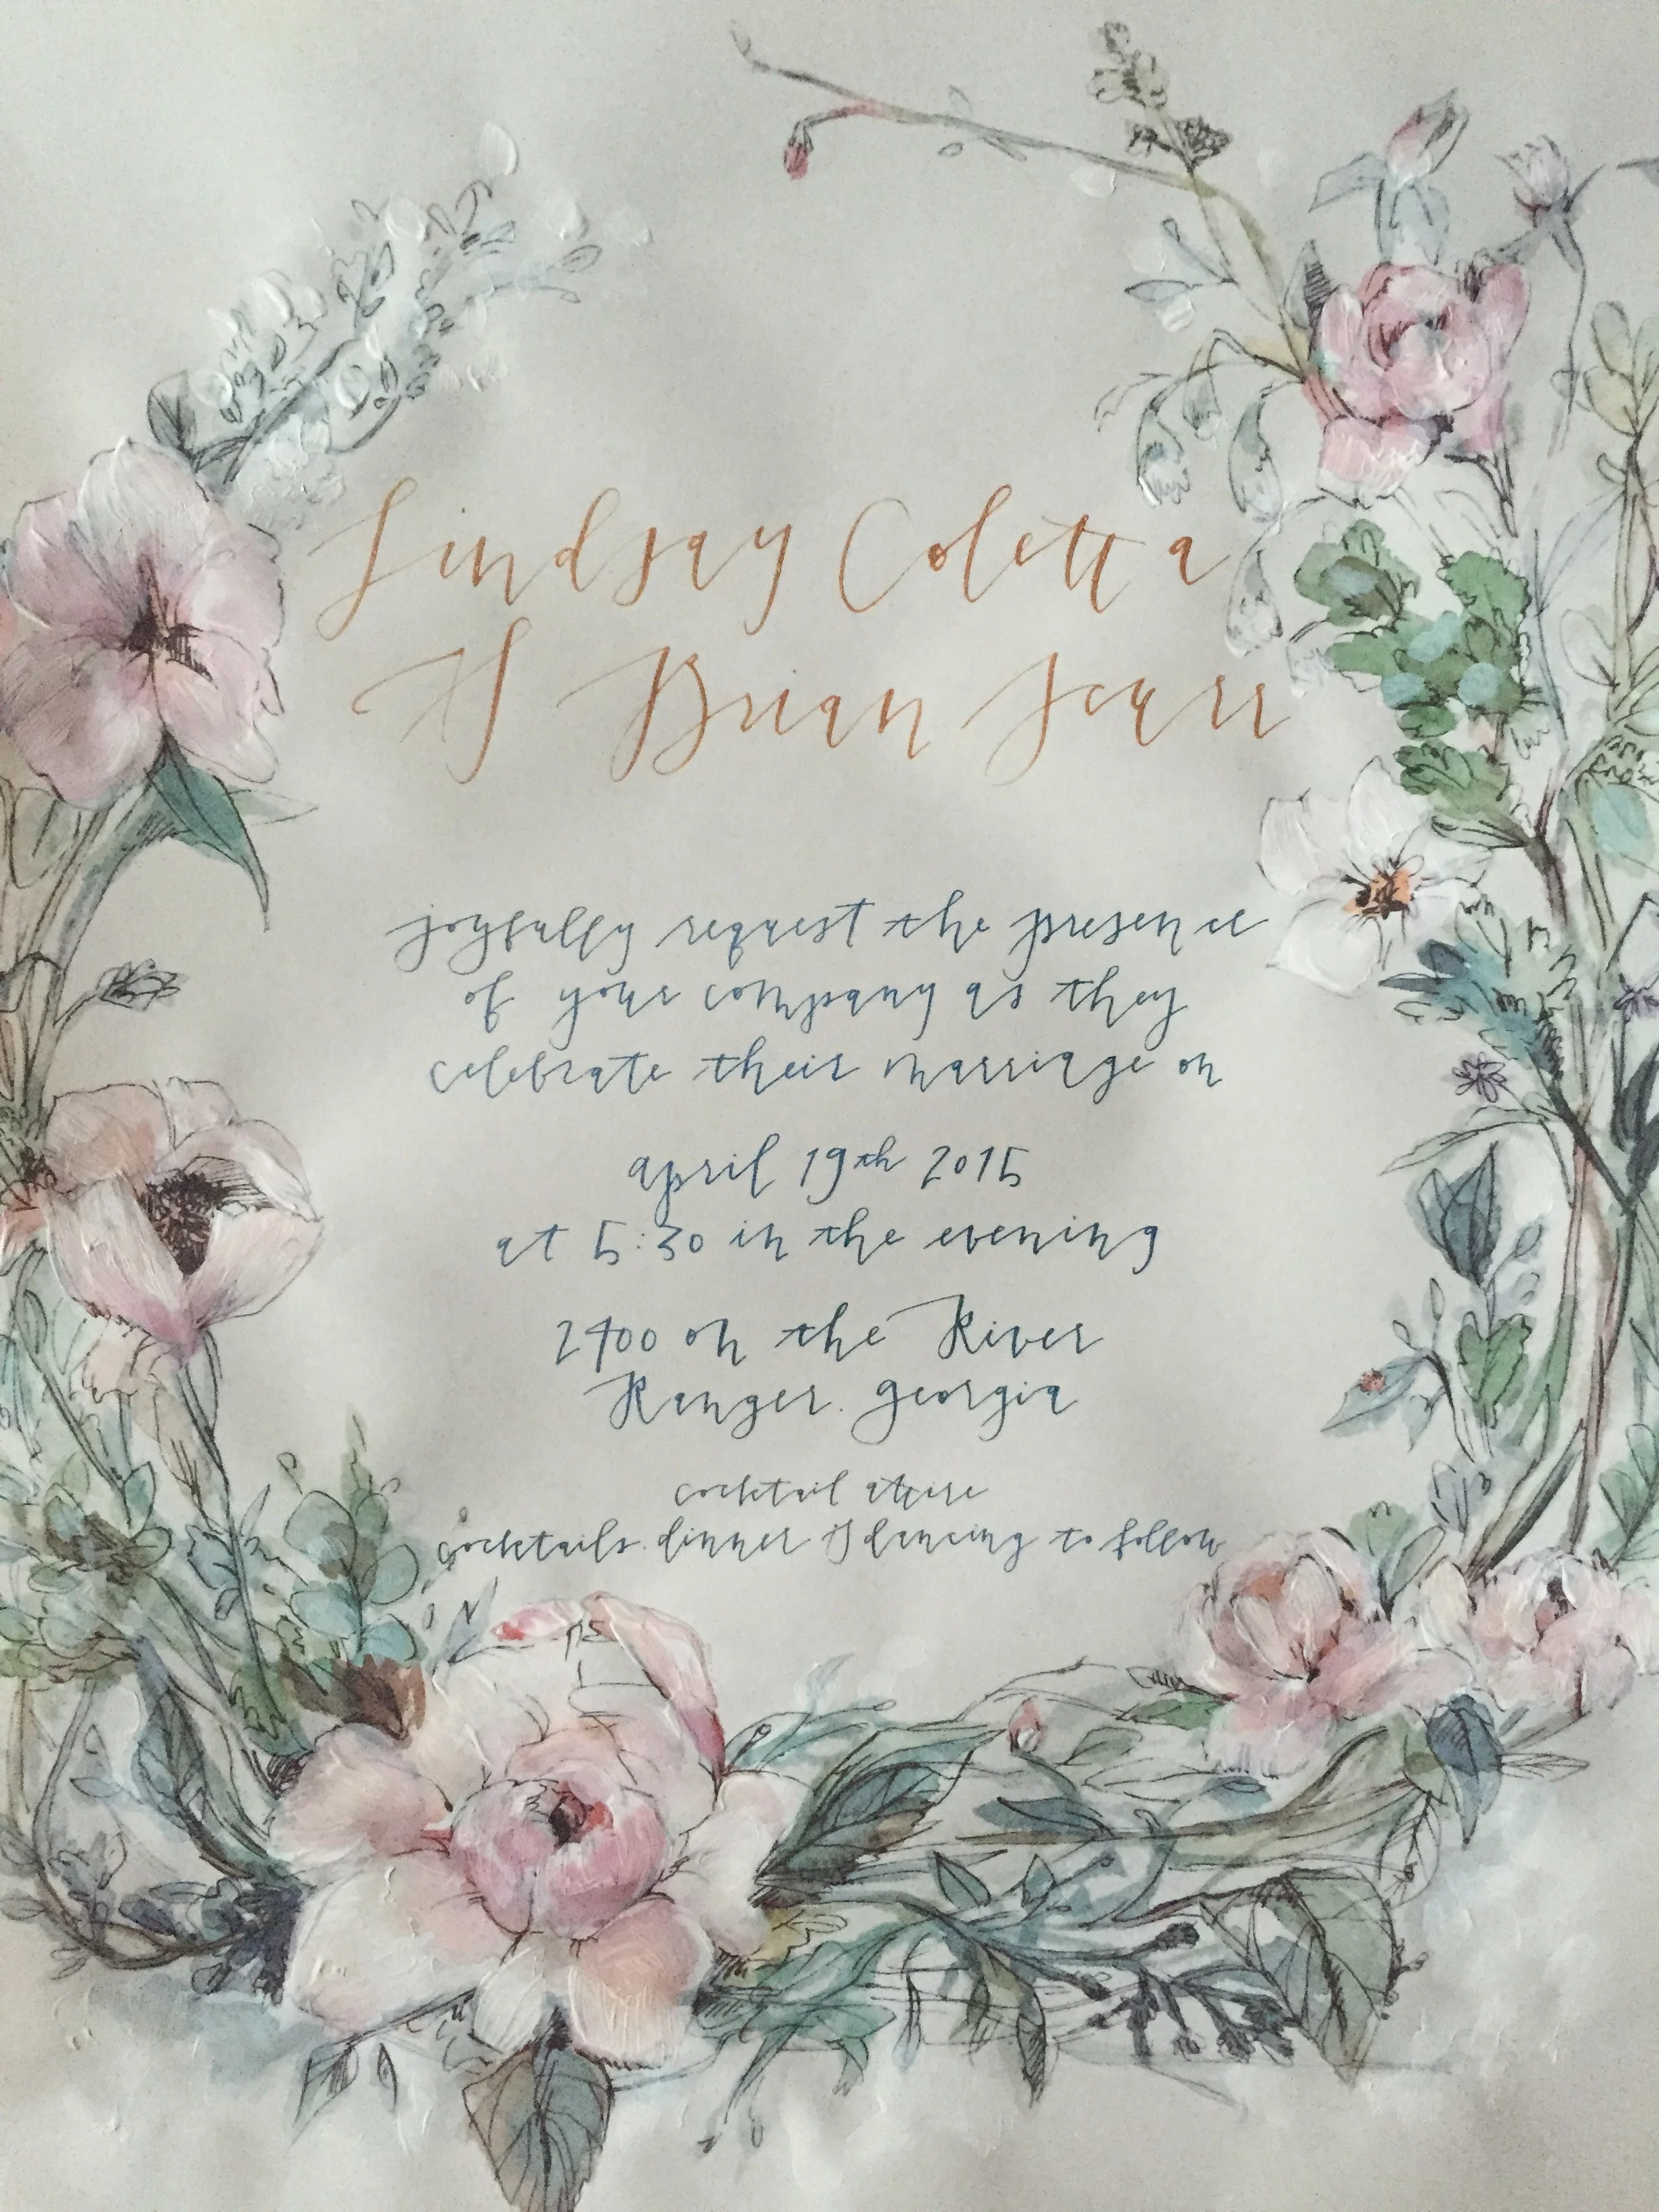 Lindsay Coletta
& Brian Scarr
joyfully request the presence
of your company as they
celebrate their marriage on
april 19th 2015
at 5:30 in the evening
2400 on the River
Ranger. georgia
cocktail attire
cocktails. dinner & dancing to follow